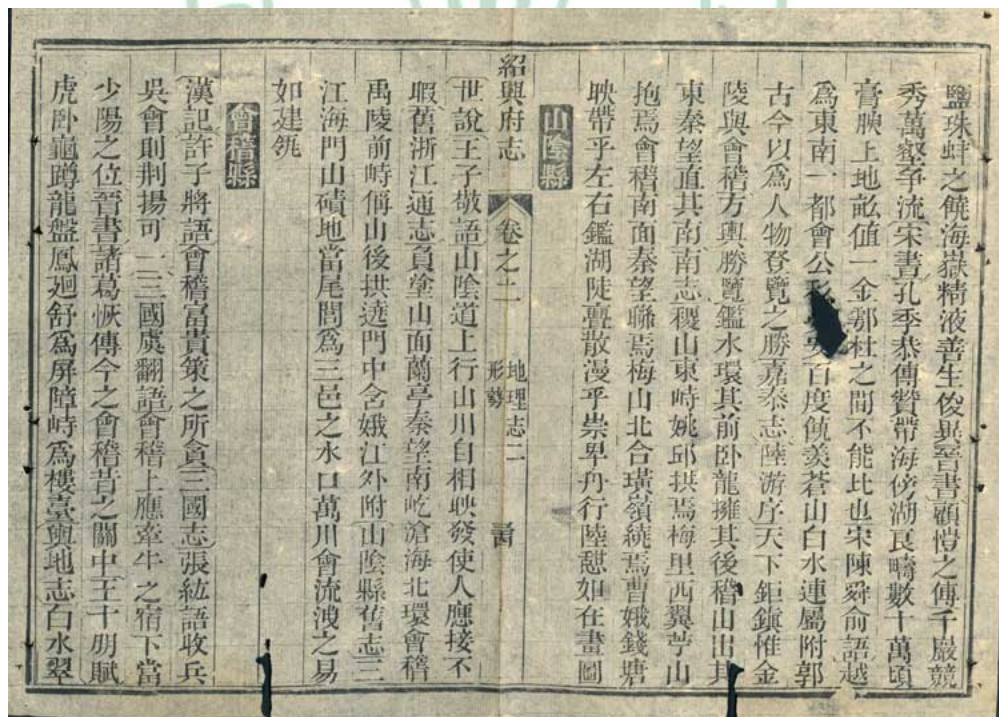 鹽珠蚌之饒海嶽精液善生俊異晉書顧愷之傳千巖競
秀萬壑爭流宋書孔季恭傳贊帶海傍湖良疇數十萬頃
膏腴上地畝值一金鄠杜之間不能比也宋陳舜俞語越
為東南一都會公私百度餼羨蒼山白水連屬附郭
古今以為人物登覽之勝嘉泰志陸游序天下鉅鎮惟金
陵與會稽方輿勝覽鑑水環其前卧龍擁其後稽山出其
東秦望直其南南志稷山東峙姚邱拱焉梅里西翼苧山
抱焉會稽南面秦望聯焉梅山北合璜嶺繞焉曹娥錢塘
映帶乎左右鑑湖陡亹散漫乎崇卑舟行陸憇如在畫圖
山陰縣
紹興府志 卷之二 地理志二 形勢
世說王子敬語山陰道上行山川自相映發使人應接不
暇舊浙江通志負塗山面蘭亭秦望南屹滄海北環會稽
禹陵前峙偁山後拱遶門中含娥江外附山陰縣舊志三
江海門山磧地當尾閭為三邑之水口萬川會流洩之易
如建瓴
會稽縣
漢記許子將語會稽富貴策之所貪三國志張紘語收兵
吳會則荆揚可一三國虞翻語會稽上應牽牛之宿下當
少陽之位晉書諸葛恢傳今之會稽昔之關中王十朋賦
虎卧龜蹲龍盤鳳廻舒為屏障峙為樓臺輿地志白水翠